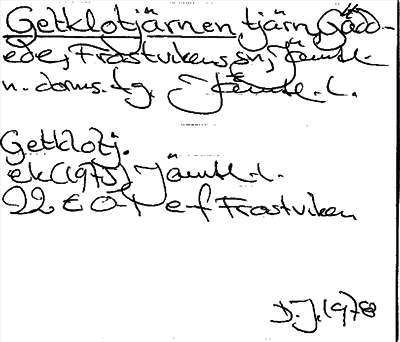 Getklotjärnen, tjärn, Gädd-
ede, Frostvikens sn, Jämtl.
n. doms. tg. Jämtl. l.
Getklotj.
ek (1975) Jämtl. l.
22 E 0-1 e-f Frostviken
D.J. 1978